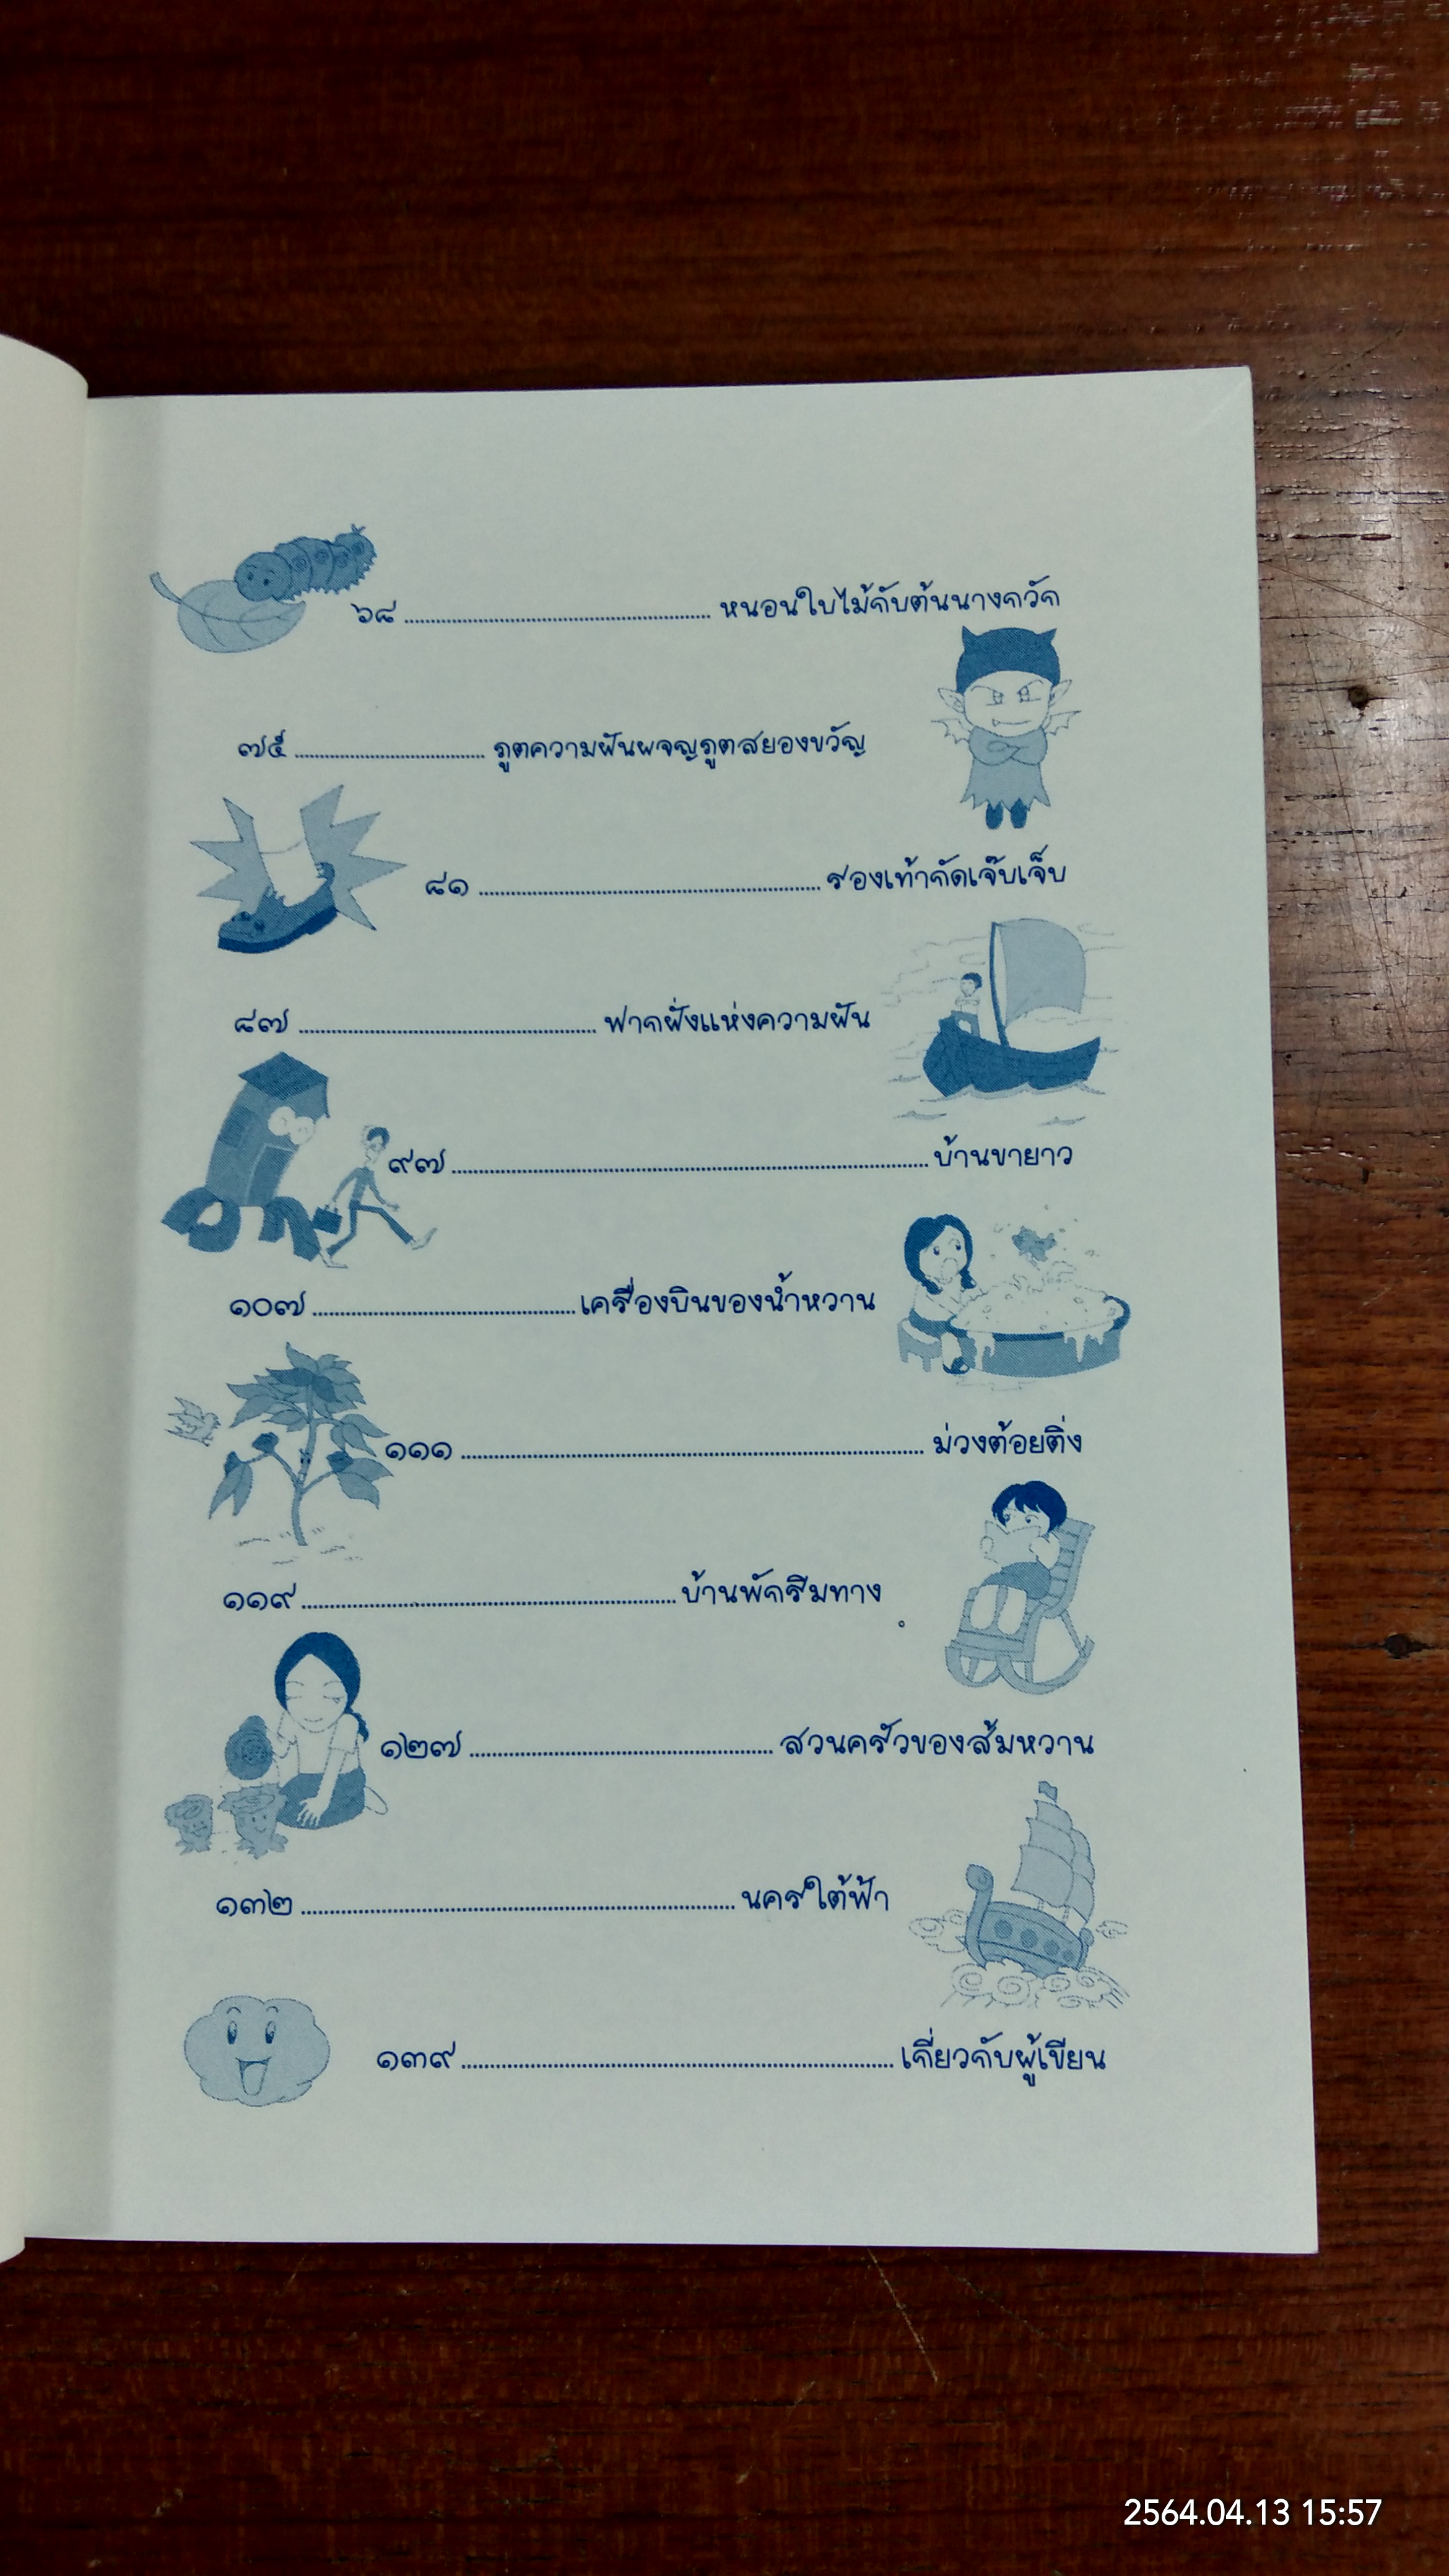 ๖๘ .......... หนอนใบไม้กับต้นนางกวัก
๗๕ .......... ภูตความฝันผจญภูตสยองขวัญ
๘๑ .......... รองเท้ากัดเจ๊บเจ็บ
๘๗ .......... ฟากฝั่งแห่งความฝัน
๙๗ .......... บ้านขายาว
๑๐๗ .......... เครื่องบินของน้ำหวาน
๑๑๑ .......... ม่วงต้อยติ่ง
๑๑๙ .......... บ้านพักริมทาง
๑๒๗ .......... สวนครัวของส้มหวาน
๑๓๒ .......... นครใต้ฟ้า
๑๓๙ .......... เกี่ยวกับผู้เขียน
2564.04.13 15:57